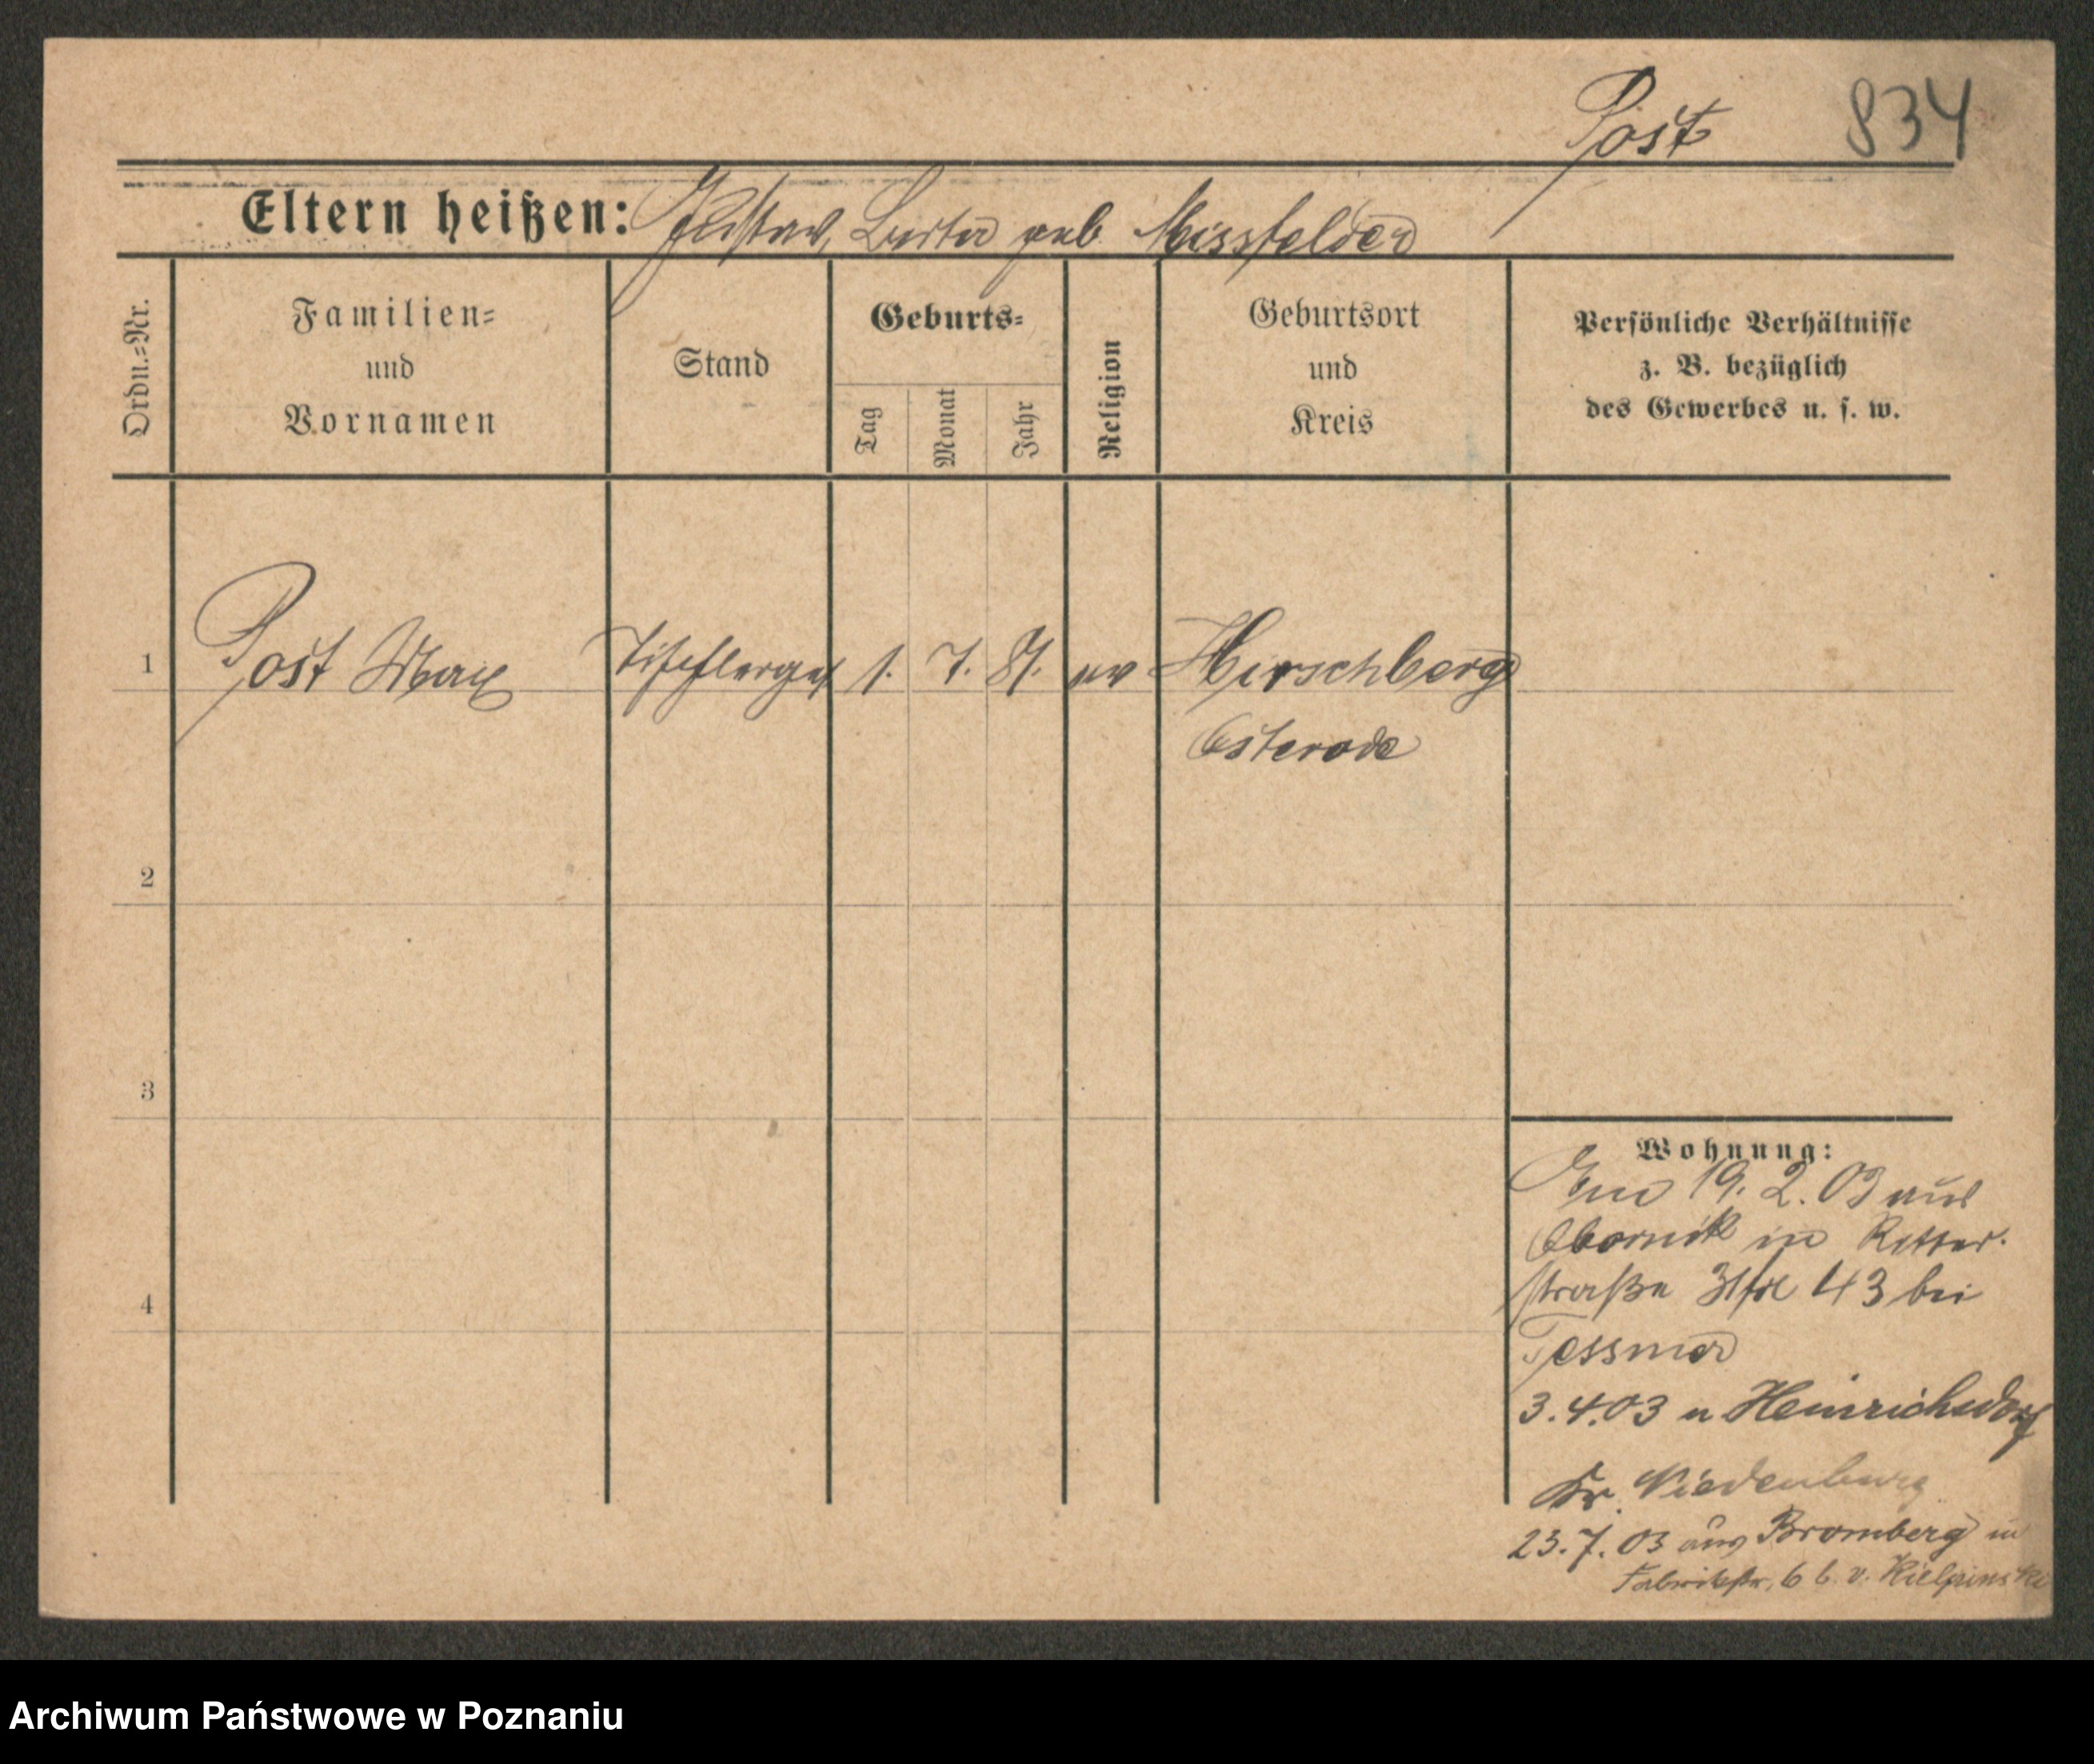 Post 834
Eltern heißen: Gustav, Berta geb. Missfelder
Ordn.=Nr.
Familien=
und
Vornamen
Stand
Geburts=
Tag
Monat
Jahr
Religion
Geburtsort
und
Kreis
Persönliche Verhältnisse
z. B. bezüglich
des Gewerbes u. s. w.
1 Post Max Tischlerges 1. 7. 81. ev Hirschberg
Osterode
2
3
4
Wohnung:
19. 2. 03 aus
Obornik in Ritter-
straße 43 bei
Tessmer
3.4.03 n Heinrichsdorf
Kr. Niedenburg
23.7.03 aus Bromberg in
Fabrikstr. 6 b. v. Kielpinski
Archiwum Państwowe w Poznaniu